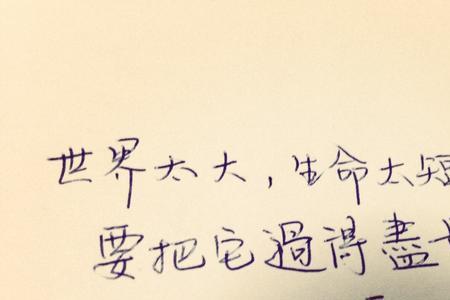 世界太大，生命太短
要把它過得盡